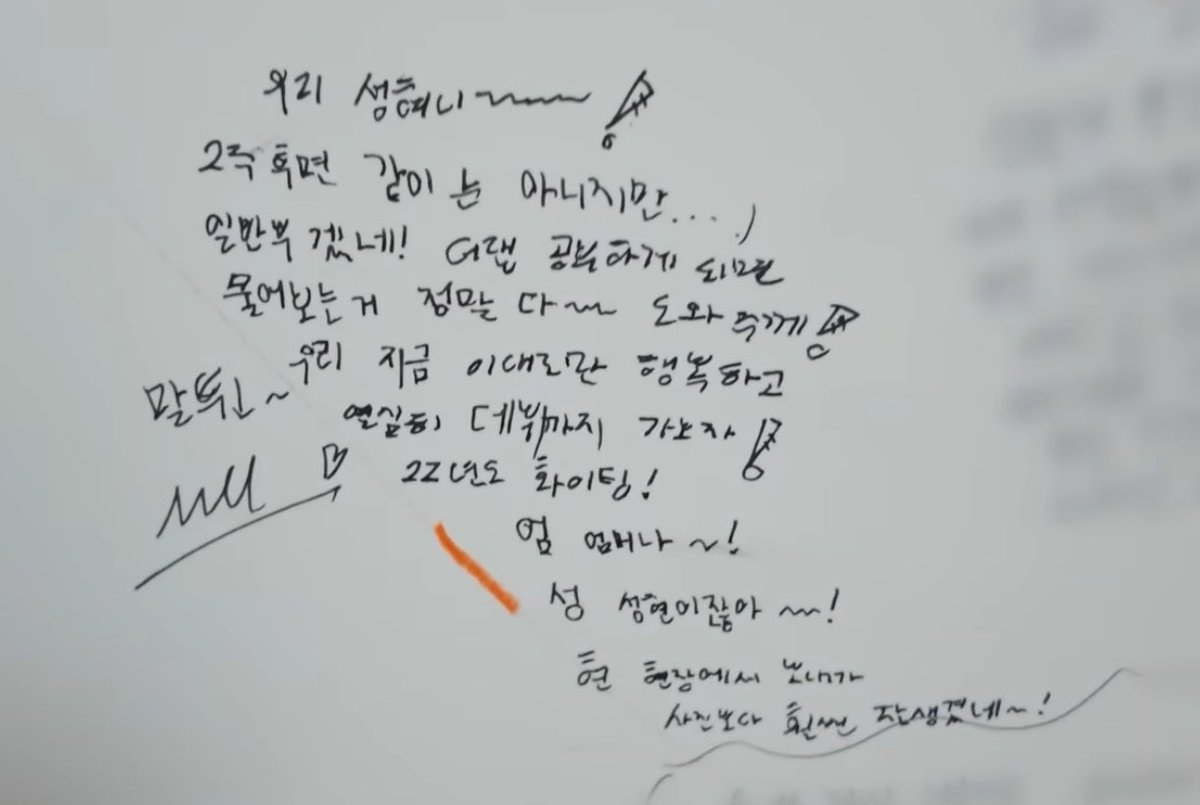 우리 성혀니~~~!
2주 후면 같이는 아니지만....;)
일반부 겠네! 더랩 공부하게 되면
물어보는거 정말 다~~ 도와주께!
우리 지금 이대로만 행복하고
열심히 데뷔까지 가보자!
22년도 화이팅!
말튀ㄴ~
엄 엄머나~!
성 성현이잖아~~!
현 현장에서 보니까
사진보다 훨씬 잘생겼네~!